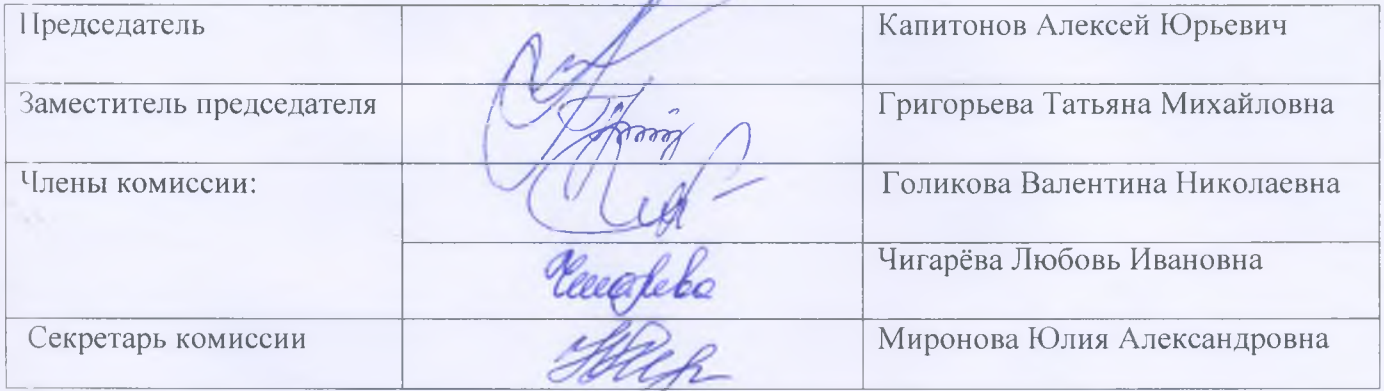 Председатель Капитонов Алексей Юрьевич
Заместитель председателя Григорьева Татьяна Михайловна
Члены комиссии: Голикова Валентина Николаевна
Чигарёва Любовь Ивановна
Секретарь комиссии Миронова Юлия Александровна